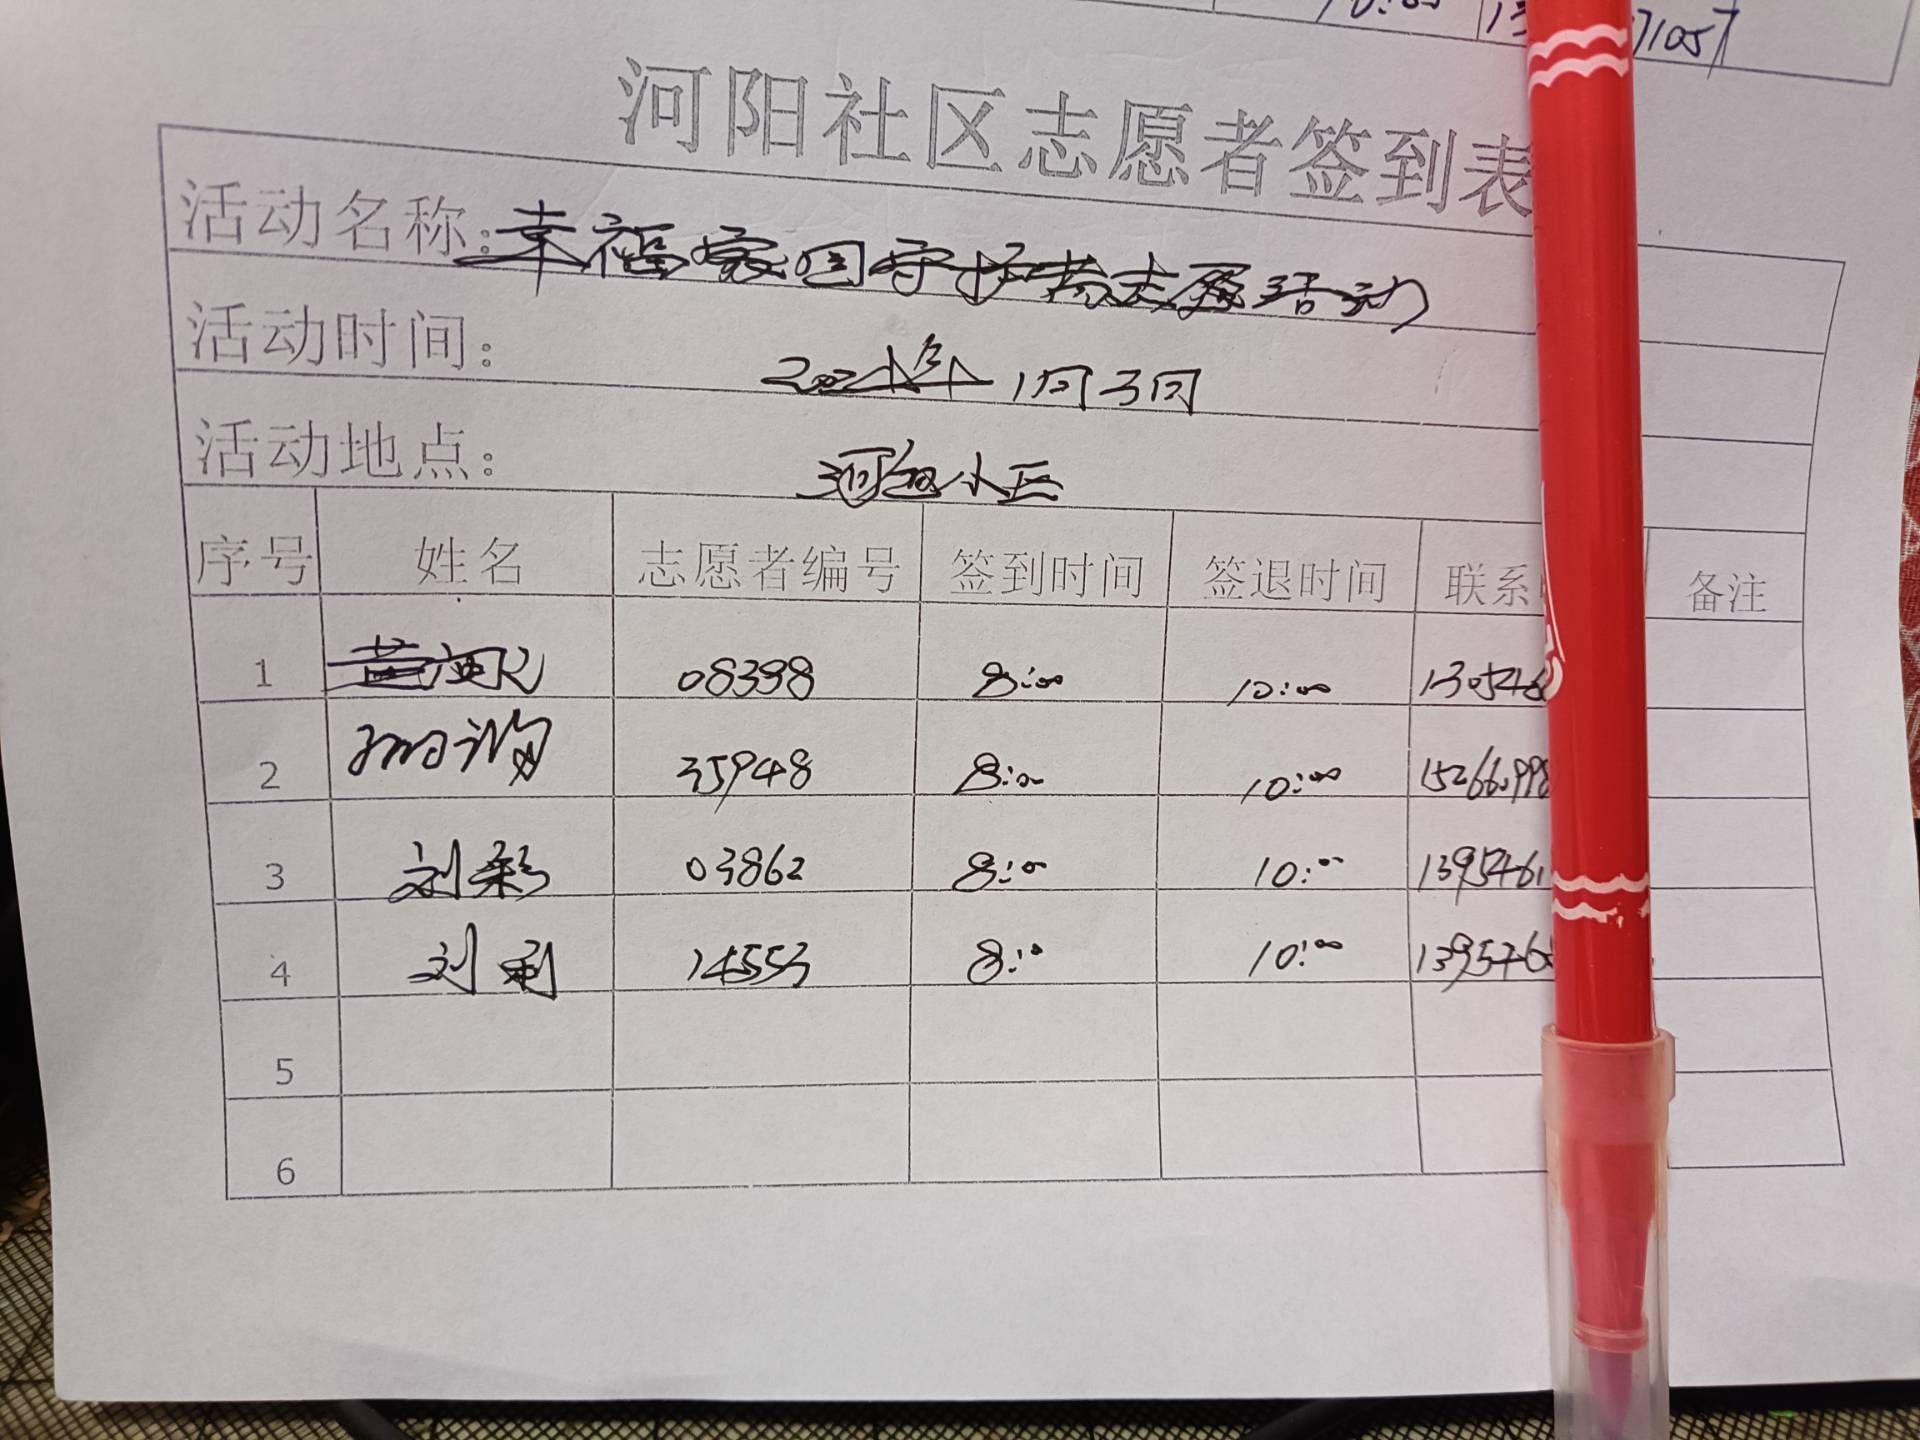 71057
河阳社区志愿者签到表
活动名称：幸福家园守护者志愿活动
活动时间： 1月3日
活动地点： 小区
序号 姓名 志愿者编号 签到时间 签退时间 联系 备注
1 08398 8:00 10:00 130546
2 35948 8:00 10:00 15266998
3 刘彩 03862 8:00 10:00 1395461
4 刘利 14553 8:00 10:00 1395460
5
6